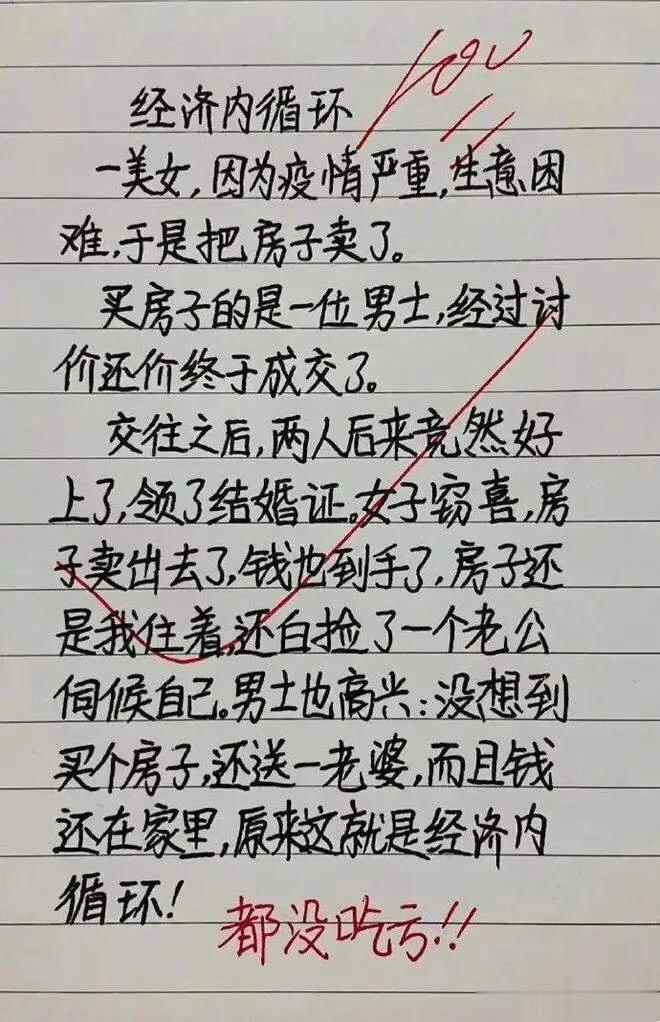 100
经济内循环
一美女,因为疫情严重,生意困
难,于是把房子卖了。
买房子的是一位男士,经过讨
价还价终于成交了。
交往之后,两人后来竟然好
上了,领了结婚证。女子窃喜,房
子卖出去了,钱也到手了,房子还
是我住着,还白捡了一个老公
伺候自己。男士也高兴:没想到
买个房子,还送一老婆,而且钱
还在家里,原来这就是经济内
循环!
都没吃亏!!